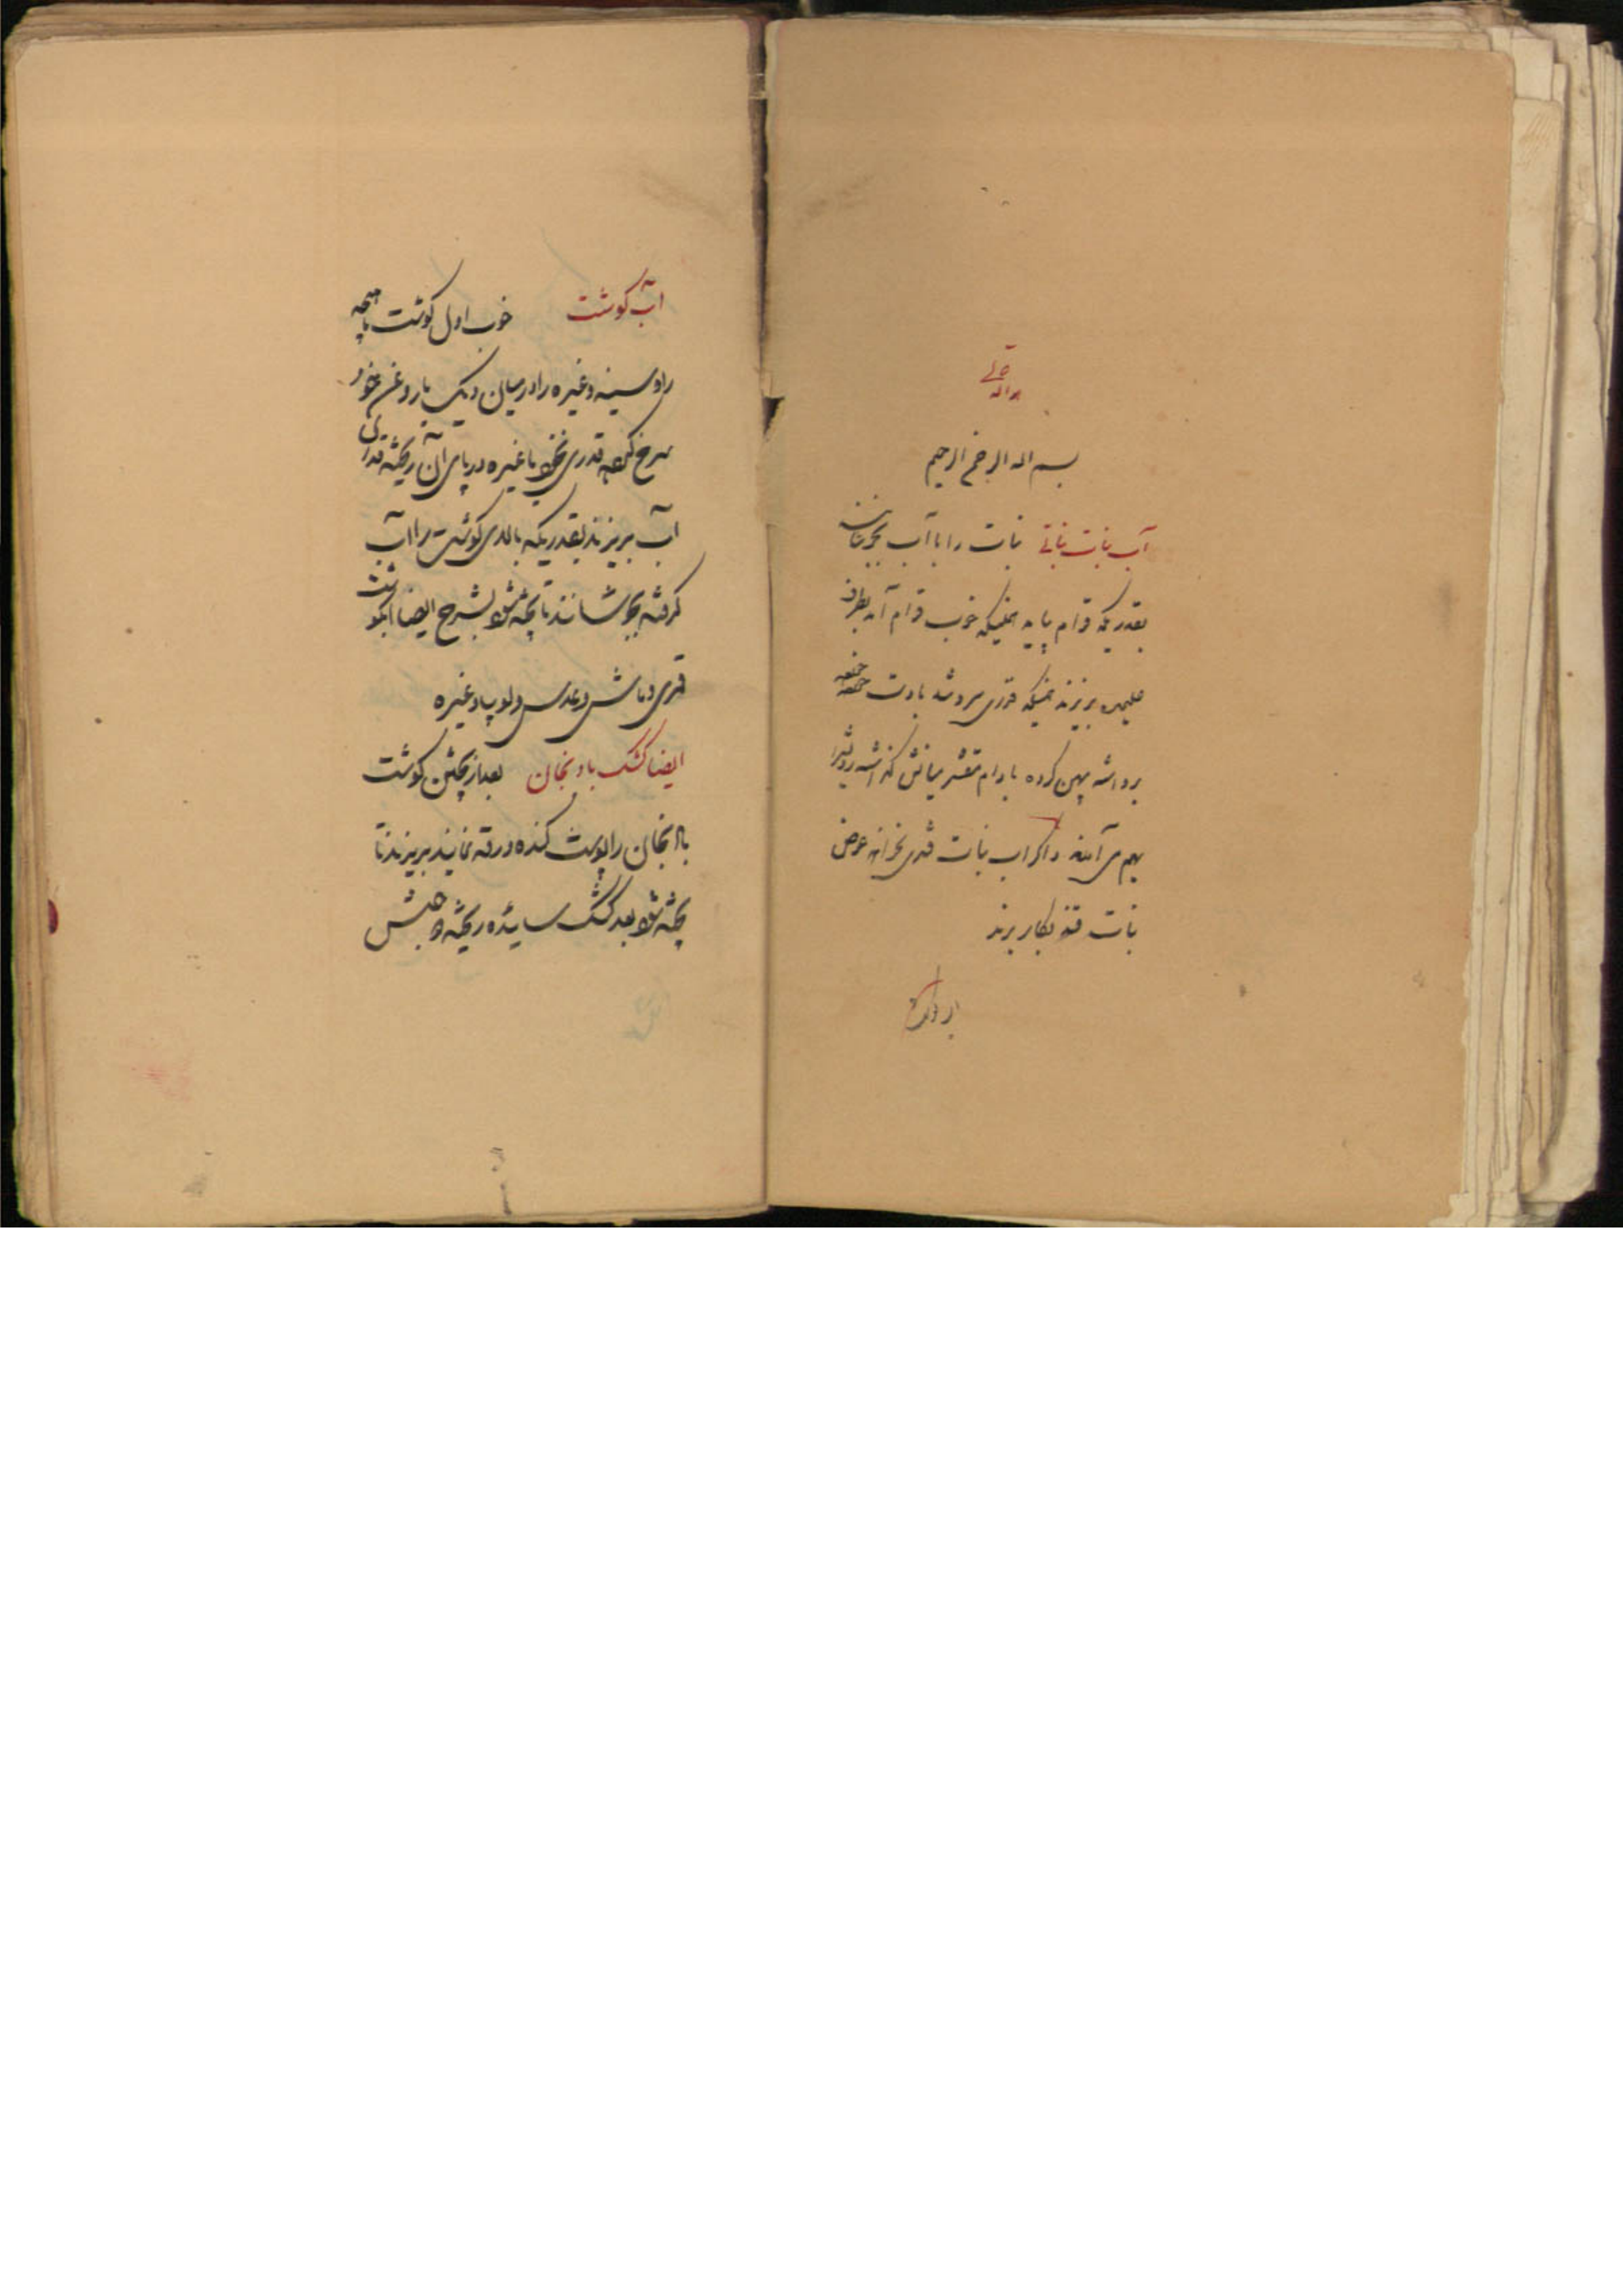 هو الله تعالی
بسم الله الرحمن الرحیم
آب نبات نباتی نبات را با آب بجوشانند
بقدریکه قوام بیاید همینکه خوب قوام آمد بظرف
علیحده بریزند همینکه قدری سرد شد با دست
برداشته پهن کرده بادام مقشر میانش گذاشته رویش را
بهم می آورند و اگر آب نبات قندی بخواهند عوض
نبات قند بکار برند
آب گوشت خوب اول گوشت ماهیچه
و سینه و غیره را در میان دیک با روغن خود
سرخ کرده قدری نخود یا غیره در پای آن ریخته قدری
آب بریزند بقدریکه بالای گوشت را آب
گرفته بجوشانند تا پخته شود بشرح ایضا آبگوشت
قمری و ماش و عدس و لوبیا و غیره
ایضا کشک بادنجان بعد از پختن گوشت
بادنجان را پوست کنده ورقه نمایند بریزند تا
پخته شود بعد کشک سائیده ریخته